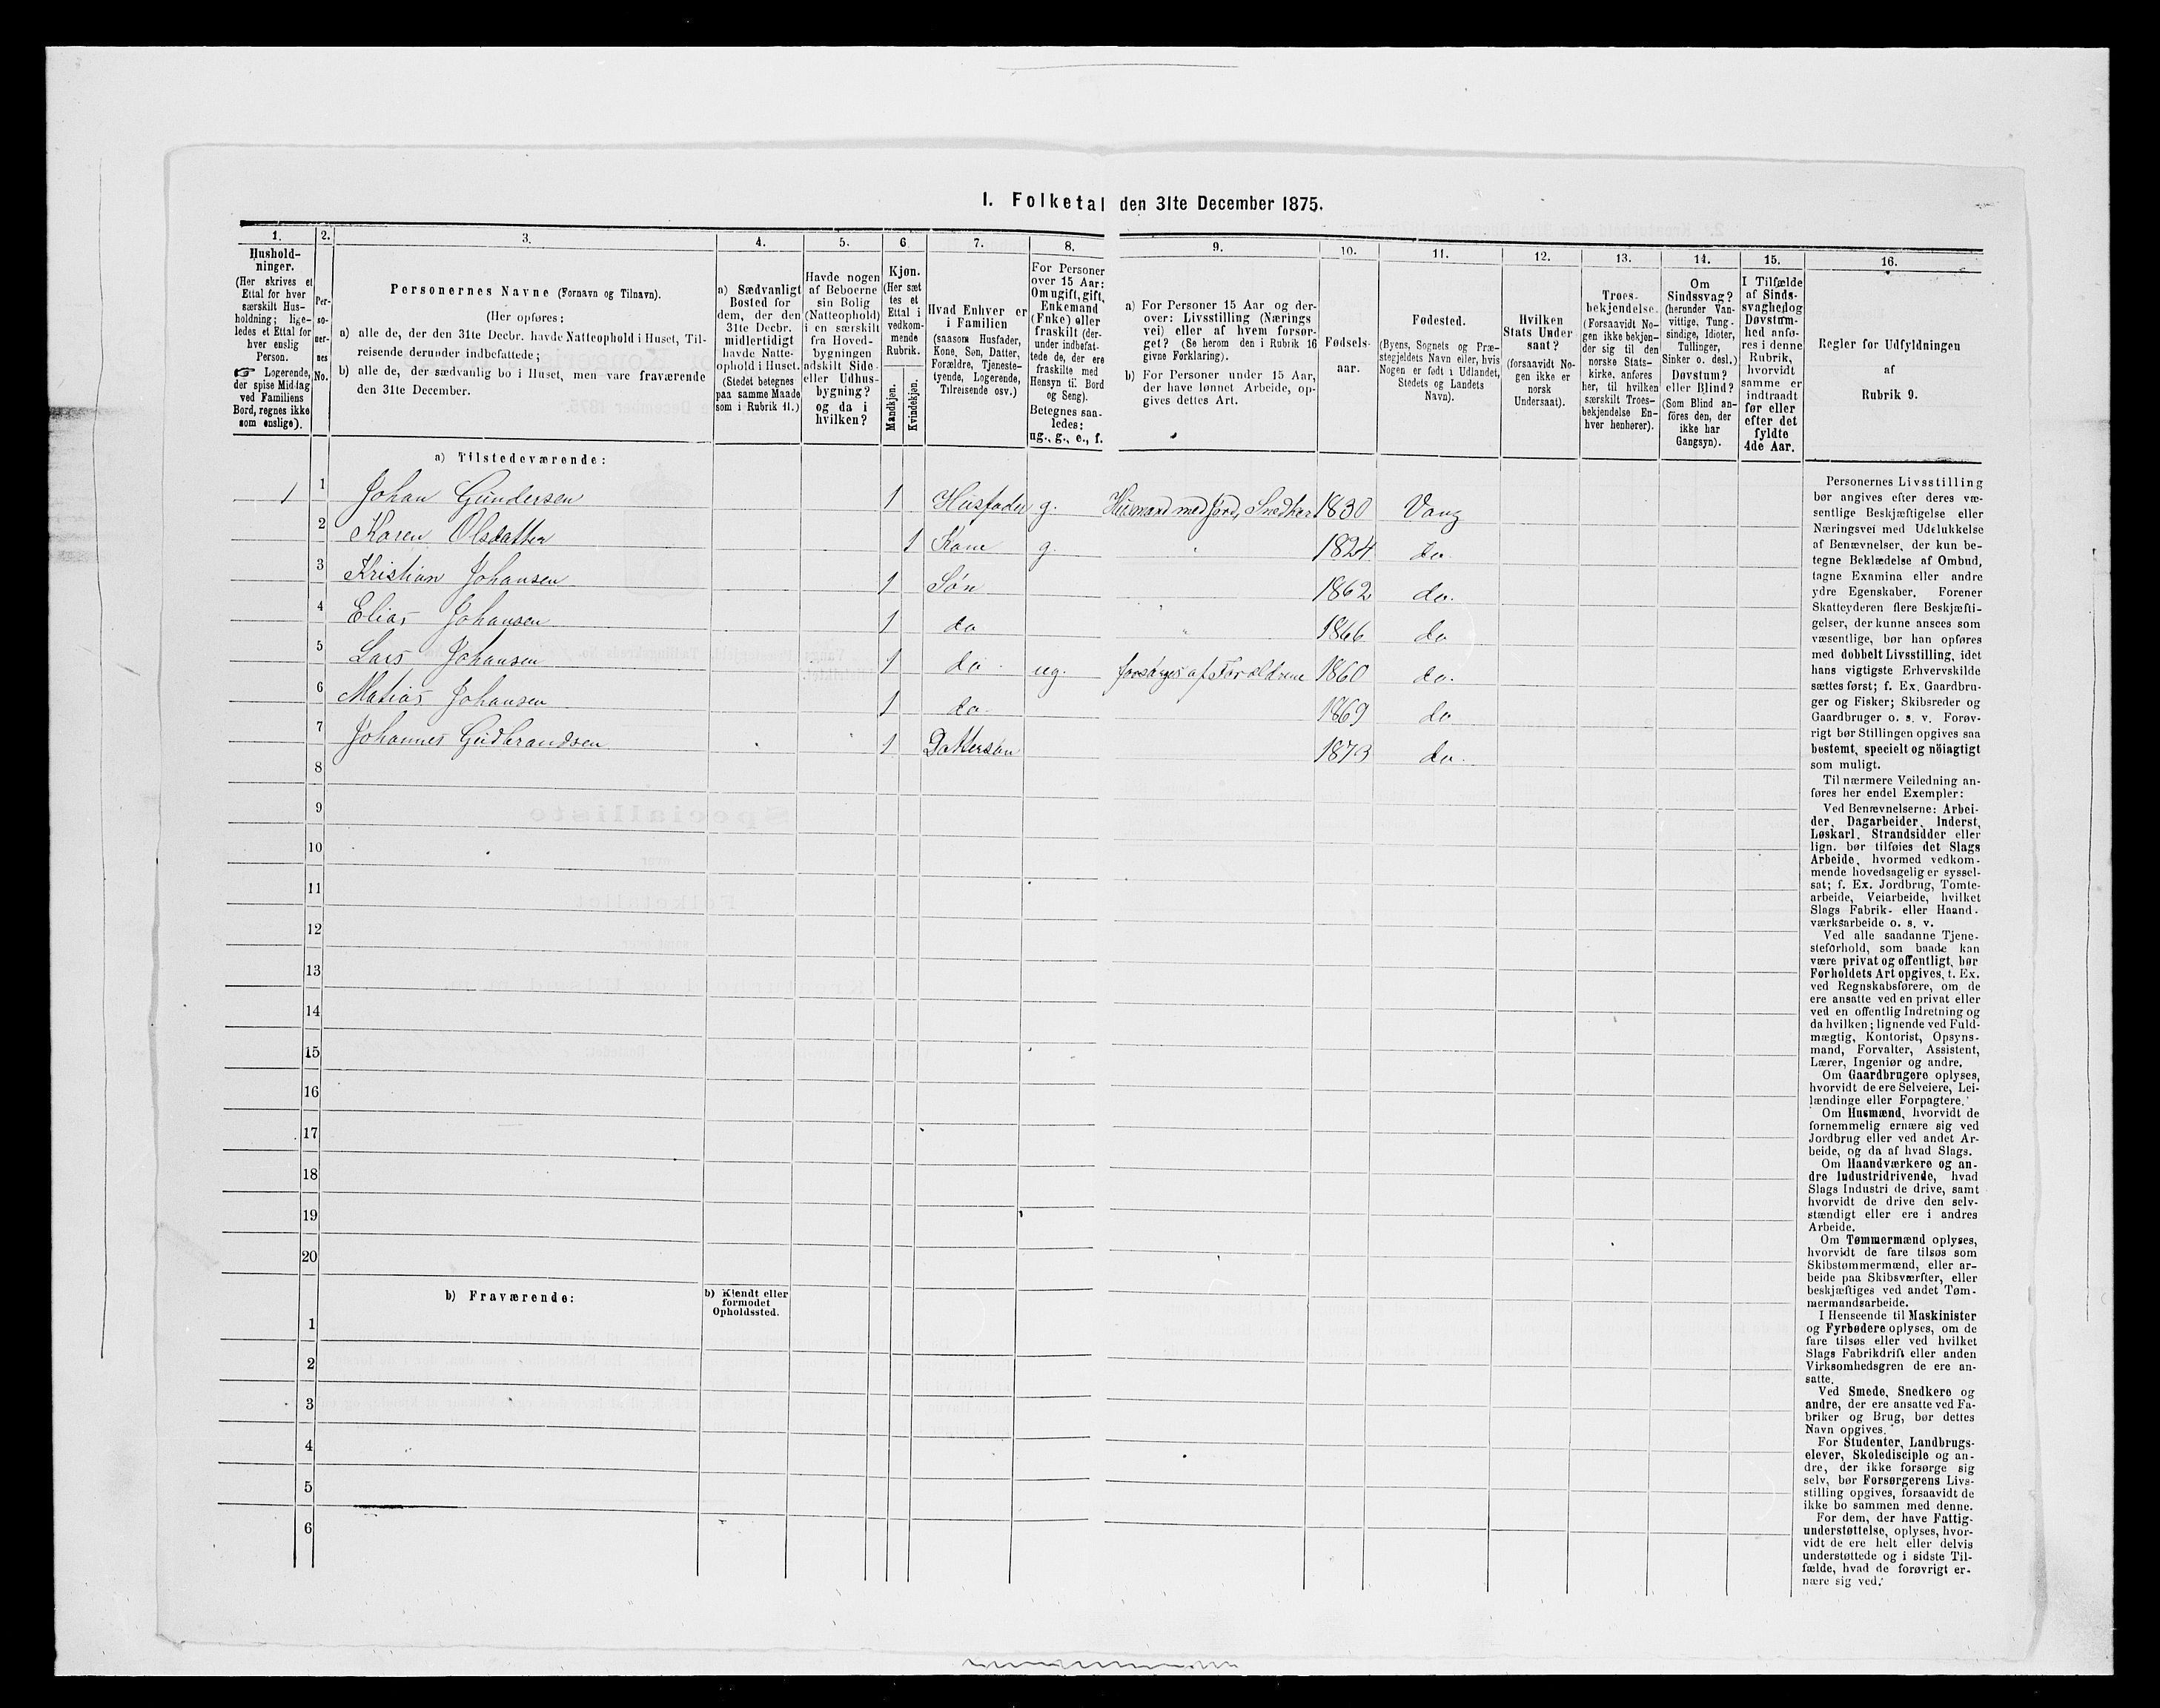 I. Folketal den 31te December 1875.
1.
2.
3.
4.
5.
6.
7.
8.
9.
10.
11.
12.
13.
14.
15.
16.
Hushold-
ninger.
(Her skrives et
Ettal for hver
særskilt Hus-
holdning; lige-
ledes et Ettal for
hver enslig
Person.
☞ Logerende,
der spise Middag
ved Familiens
Bord, regnes ikke
som enslige).
Per-
so-
ner-
nes
No.
Personernes Navne (Fornavn og Tilnavn).
(Her opføres:
a) alle de, der den 31te Decbr. havde Natteophold i Huset, Til-
reisende derunder indbefattede;
b) alle de, der sædvanlig bo i Huset, men vare fraværende
den 31te December.
a) Sædvanligt
Bosted for
dem, der den
31te Decbr.
midlertidigt
havde Natte-
ophold i Huset.
(Stedet betegnes
paa samme Maade
som i Rubrik 11.)
Havde nogen
af Beboerne
sin Bolig
(Natteophold)
i en særskilt
fra Hoved-
bygningen
adskilt Side-
eller Udhus-
bygning?
og da i
hvilken?
Kjøn.
(Her sæt
tes et
Ettal i
vedkom-
mende
Rubrik.
Mandkjøn.
Kvindekjøn.
Hvad Enhver er
i Familien
(saasom Husfader,
Kone, Søn, Datter,
Forældre, Tjeneste-
tyende, Logerende,
Tilreisende osv.)
For Personer
over 15 Aar:
Om ugift, gift,
Enkemand
(Enke) eller
fraskilt (der-
under indbefat-
tede de, der ere
fraskilte med
Hensyn til Bord
og Seng).
Betegnes saa-
ledes:
ug., g., e., f.
a) For Personer 15 Aar og der-
over: Livsstilling (Nærings
vei) eller af hvem forsør-
get? (Se herom den i Rubrik 16
givne Forklaring).
b) For Personer under 15 Aar,
der have lønnet Arbeide, op-
gives dettes Art.
Fødsels-
aar.
Fødested.
(Byens, Sognets og Præ-
stegjeldets Navn eller, hvis
Nogen er født i Udlandet,
Stedets og Landets
Navn).
Hvilken
Stats Under-
saat?
(forsaavidt No-
gen ikke er
norsk
Undersaat).
Troes-
bekjendelse.
(Forsaavidt No-
gen ikke bekjen-
der sig til den
norske Stats-
kirke, anføres
her, til hvilken
særskilt Troes-
bekjendelse En-
hver henhører).
Om
Sindssvag?
(herunder Van-
vittige, Tung-
sindige, Idioter,
Tullinger,
Sinker o. desl.)
Døvstum?
eller Blind?
(Som Blind an-
føres den, der
ikke har
Gangsyn).
I Tilfælde
af Sinds-
svaghed og
Døvstum-
hed anfø-
res i denne
Rubrik,
hvorvidt
samme er
indtraadt
før eller
efter det
fyldte
4de Aar.
Regler for Udfyldningen
af
Rubrik 9.
a) Tilstedeværende:
1 1 Johan Gundersen 1 Husfader g. Husmand med Jord, Snedker 1830 Vang
2 Karen Olsdatter 1 Kone g. " 1824 do.
3 Kristian Johansen 1 Søn 1862 do.
4 Elias Johansen 1 do " 1866 do
5 Lars Johansen 1 do. ug. forsørges af Forældrene 1860 do.
6 Matias Johansen 1 do. 1869 do
7 Johannes Gudbrandsen 1 Dattersøn 1873 do.
8
9
10
11
12
13
14
15
16
17
18
19
20
b) Fraværende:
b) Kjendt eller
formodet
Opholdssted.
1
2
3
4
5
6
Personernes Livsstilling
bør angives efter deres væ-
sentlige Beskjæftigelse eller
Næringsvei med Udelukkelse
af Benævnelser, der kun be-
tegne Beklædelse af Ombud,
tagne Examina eller andre
ydre Egenskaber. Forener
Skatteyderen flere Beskjæfti-
gelser, der kunne ansees som
væsentlige, bør han opføres
med dobbelt Livsstilling, idet
hans vigtigste Erhvervskilde
sættes først; f. Ex. Gaardbru-
ger og Fisker; Skibsreder og
Gaardbruger o. s. v. Forøv-
rigt bør Stillingen opgives saa
bestemt, specielt og nöiagtigt
som muligt.
Til nærmere Veiledning an-
føres her endel Exempler:
Ved Benævnelserne: Arbei-
der, Dagarbeider, Inderst,
Løskarl, Strandsidder eller
lign. bør tilføies det Slags
Arbeide, hvormed vedkom-
mende hovedsagelig er syssel-
sat; f. Ex. Jordbrug, Tomte-
arbeide, Veiarbeide, hvilket
Slags Fabrik- eller Haand-
værksarbeide o. s. v.
Ved alle saadanne Tjene-
steforhold, som baade kan
være privat og offentligt, bør
Forholdets Art opgives, t. Ex.
ved Regnskabsførere, om de
ere ansatte ved en privat eller
ved en offentlig Indretning og
da hvilken; lignende ved Fuld-
mægtig, Kontorist, Opsyns-
mand, Forvalter, Assistent,
Lærer, Ingeniør og andre.
Om Gaardbrugere oplyses,
hvorvidt de ere Selveiere, Lei-
lændinge eller Forpagtere.
Om Husmænd, hvorvidt de
fornemmelig ernære sig ved
Jordbrug eller ved andet Ar-
beide, og da af hvad Slags.
Om Haandværkere og an-
dre Industridrivende, hvad
Slags Industri de drive, samt
hvorvidt de drive den selv-
stændigt eller ere i andres
Arbeide.
Om Tømmermænd oplyses,
hvorvidt de fare tilsøs som
Skibstømmermænd, eller ar-
beide paa Skibsværfter, eller
beskjæftiges ved andet Tøm-
mermandsarbeide.
I Henseende til Maskinister
og Fyrbødere oplyses, om de
fare tilsøs eller ved hvilket
Slags Fabrikdrift eller anden
Virksomhedsgren de ere an-
satte.
Ved Smede, Snedkere og
andre, der ere ansatte ved Fa-
briker og Brug, bør dettes
Navn opgives.
For Studenter, Landbrugs-
elever, Skoledisciple og an-
dre, der ikke forsørge sig
selv, bør Forsørgerens Livs-
stilling opgives, forsaavidt de
ikke bo sammen med denne.
For dem, der have Fattig-
understøttelse, oplyses, hvor-
vidt de ere helt eller delvis
understøttede og i sidste Til-
fælde, hvad de forøvrigt er-
nære sig ved.